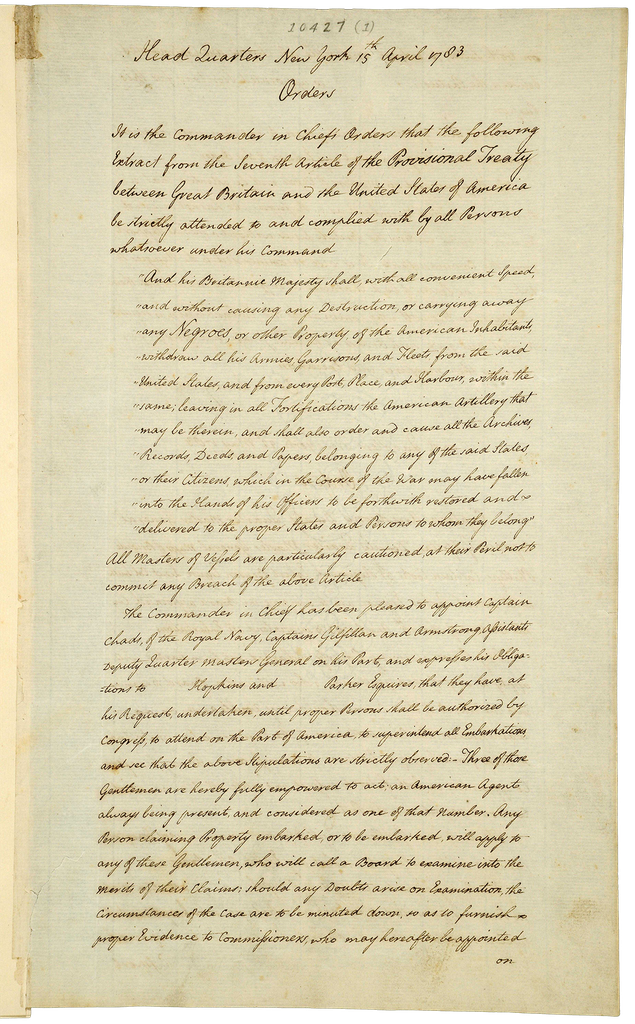 10427 (1)
Head Quarters New York 15th April 1783
Orders
It is the Commander in Chiefs Orders that the following
Extract from the Seventh Article of the Provisional Treaty
between Great Britain and the United States of America
be strictly attended to and complied with by all Persons
whatsoever under his Command
"And his Britannic Majesty shall, with all convenient Speed,
"and without causing any Destruction, or carrying away
"any Negroes, or other Property of the American Inhabitants,
"withdraw all his Armies, Garrisons, and Fleets from the said
"United States, and from every Port, Place, and Harbour, within the
"same; leaving in all Fortifications the American Artillery that
"may be therein, and shall also order and cause all the Archives,
"Records, Deeds, and Papers, belonging to any of the said States
"or their Citizens which in the Course of the War may have fallen
"into the Hands of his Officers to be forthwith restored and
"delivered to the proper States and Persons to whom they belong"
All Masters of Vessels are particularly cautioned, at their Peril not to
commit any Breach of the above Article
The Commander in Chief has been pleased to appoint Captain
Chads, of the Royal Navy, Captains Gilfillan and Armstrong, Assistants
Deputy Quarter Masters General on his Part, and expresses his Obliga-
-tions to Hopkins and Parker Esquires, that they have, at
his Request, undertaken, until proper Persons shall be authorized by
Congress, to attend on the Part of America, to superintend all Embarkations
and see that the above Stipulations are strictly observed:- Three of those
Gentlemen are hereby fully empowered to act; an American Agent
always being present, and considered as one of that Number. Any
Person claiming Property embarked, or to be embarked, will apply to
any of these Gentlemen, who will call a Board to examine into the
Merits of their Claims; should any Doubts arise on Examination, the
Circumstances of the Case are to be minuted down, so as to furnish
proper Evidence to Commissioners, who may hereafter be appointed
on